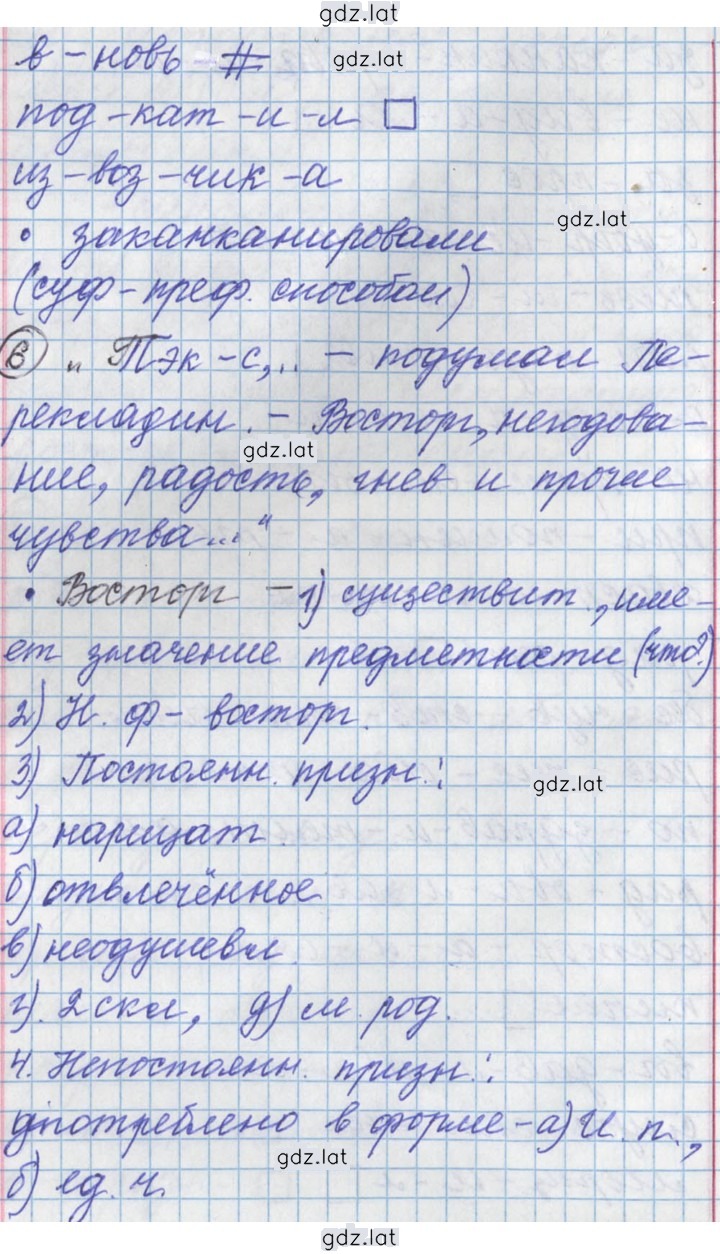 gdz.lat
в – новь – #
gdz.lat
под – кат – и – л □
из – воз – чик – а
gdz.lat
• заканканировали
(суф – преф. способом)
⑥ „Тэк – с,.. – подумал Пе-
рекладин. – Восторг, негодова-
gdz.lat
ние, радость, гнев и прочие
чувства..."
• Восторг – 1) существит., име-
ет значение предметности (что?)
2) Н. ф – восторг.
3) Постоянн. призн.:
gdz.lat
а) нарицат.
б) отвлечённое
в) неодушевл.
г). 2 скл, д) м. род.
4. Непостоянн. призн.:
употреблено в форме – а) И. п.,
gdz.lat
б) ед. ч.
gdz.lat